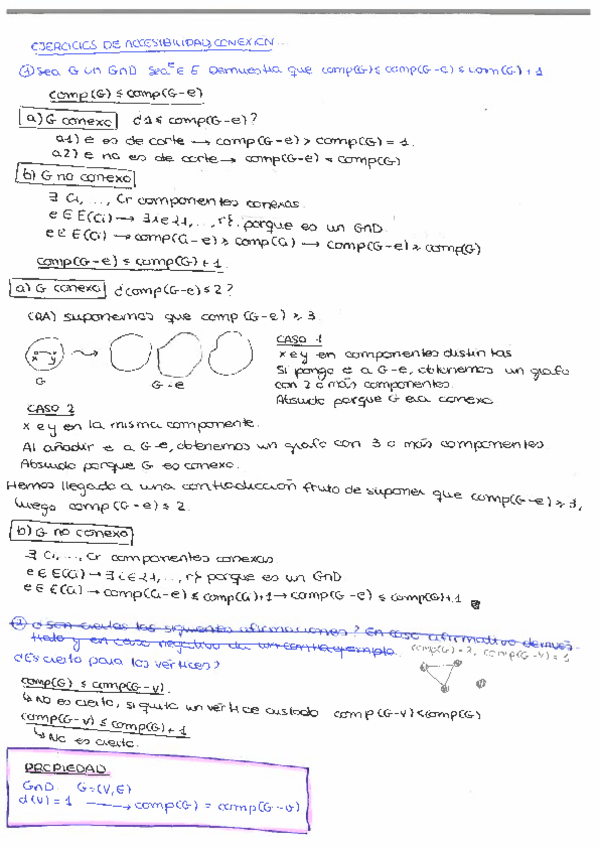 EJERCICIOS DE ACCESIBILIDAD, CONEXIÓN...
① Sea G un GnD Sea e ∈ E Demuestra que comp(G) ≤ comp(G-e) ≤ com(G)+1
comp(G) ≤ comp(G-e)
a) G conexo ¿1 ≤ comp(G-e)?
a1) e es de corte → comp(G-e) > comp(G) = 1.
a2) e no es de corte → comp(G-e) = comp(G)
b) G no conexo
∃ C1, ..., Cr componentes conexas.
e ∈ E(Ci) → ∃ i ∈ {1, ..., r}. porque es un GnD.
e ∈ E(Ci) → comp(Ci-e) ≥ comp(Ci) → comp(G-e) ≥ comp(G)
comp(G-e) ≤ comp(G)+1.
a) G conexo ¿comp(G-e) ≤ 2?
(RA) suponemos que comp(G-e) ≥ 3
x y
G
G-e
CASO 1
x e y en componentes distintas
Si pongo e a G-e, obtenemos un grafo
con 2 o más componentes.
Absurdo porque G era conexo
CASO 2
x e y en la misma componente.
Al añadir e a G-e, obtenemos un grafo con 3 o más componentes
Absurdo porque G es conexo.
Hemos llegado a una contradicción fruto de suponer que comp(G-e) ≥ 3,
luego comp(G-e) ≤ 2.
b) G no conexo
∃ C1, ..., Cr componentes conexas
e ∈ E(Ci) → ∃ i ∈ {1, ..., r} porque es un GnD
e ∈ E(Ci) → comp(Ci-e) ≤ comp(Ci)+1 → comp(G-e) ≤ comp(G)+1
② ¿son ciertas las siguientes afirmaciones? En caso afirmativo demués-
tralo y en caso negativo da un contraejemplo.
comp(G)=2, comp(G-v)=1
¿Es cierto para los vértices?
comp(G) ≤ comp(G-v).
↳ No es cierto, si quito un vértice aislado comp(G-v) < comp(G)
comp(G-v) ≤ comp(G)+1
↳ No es cierto.
PROPIEDAD
GnD G=(V,E)
d(v)=1 → comp(G) = comp(G-v)